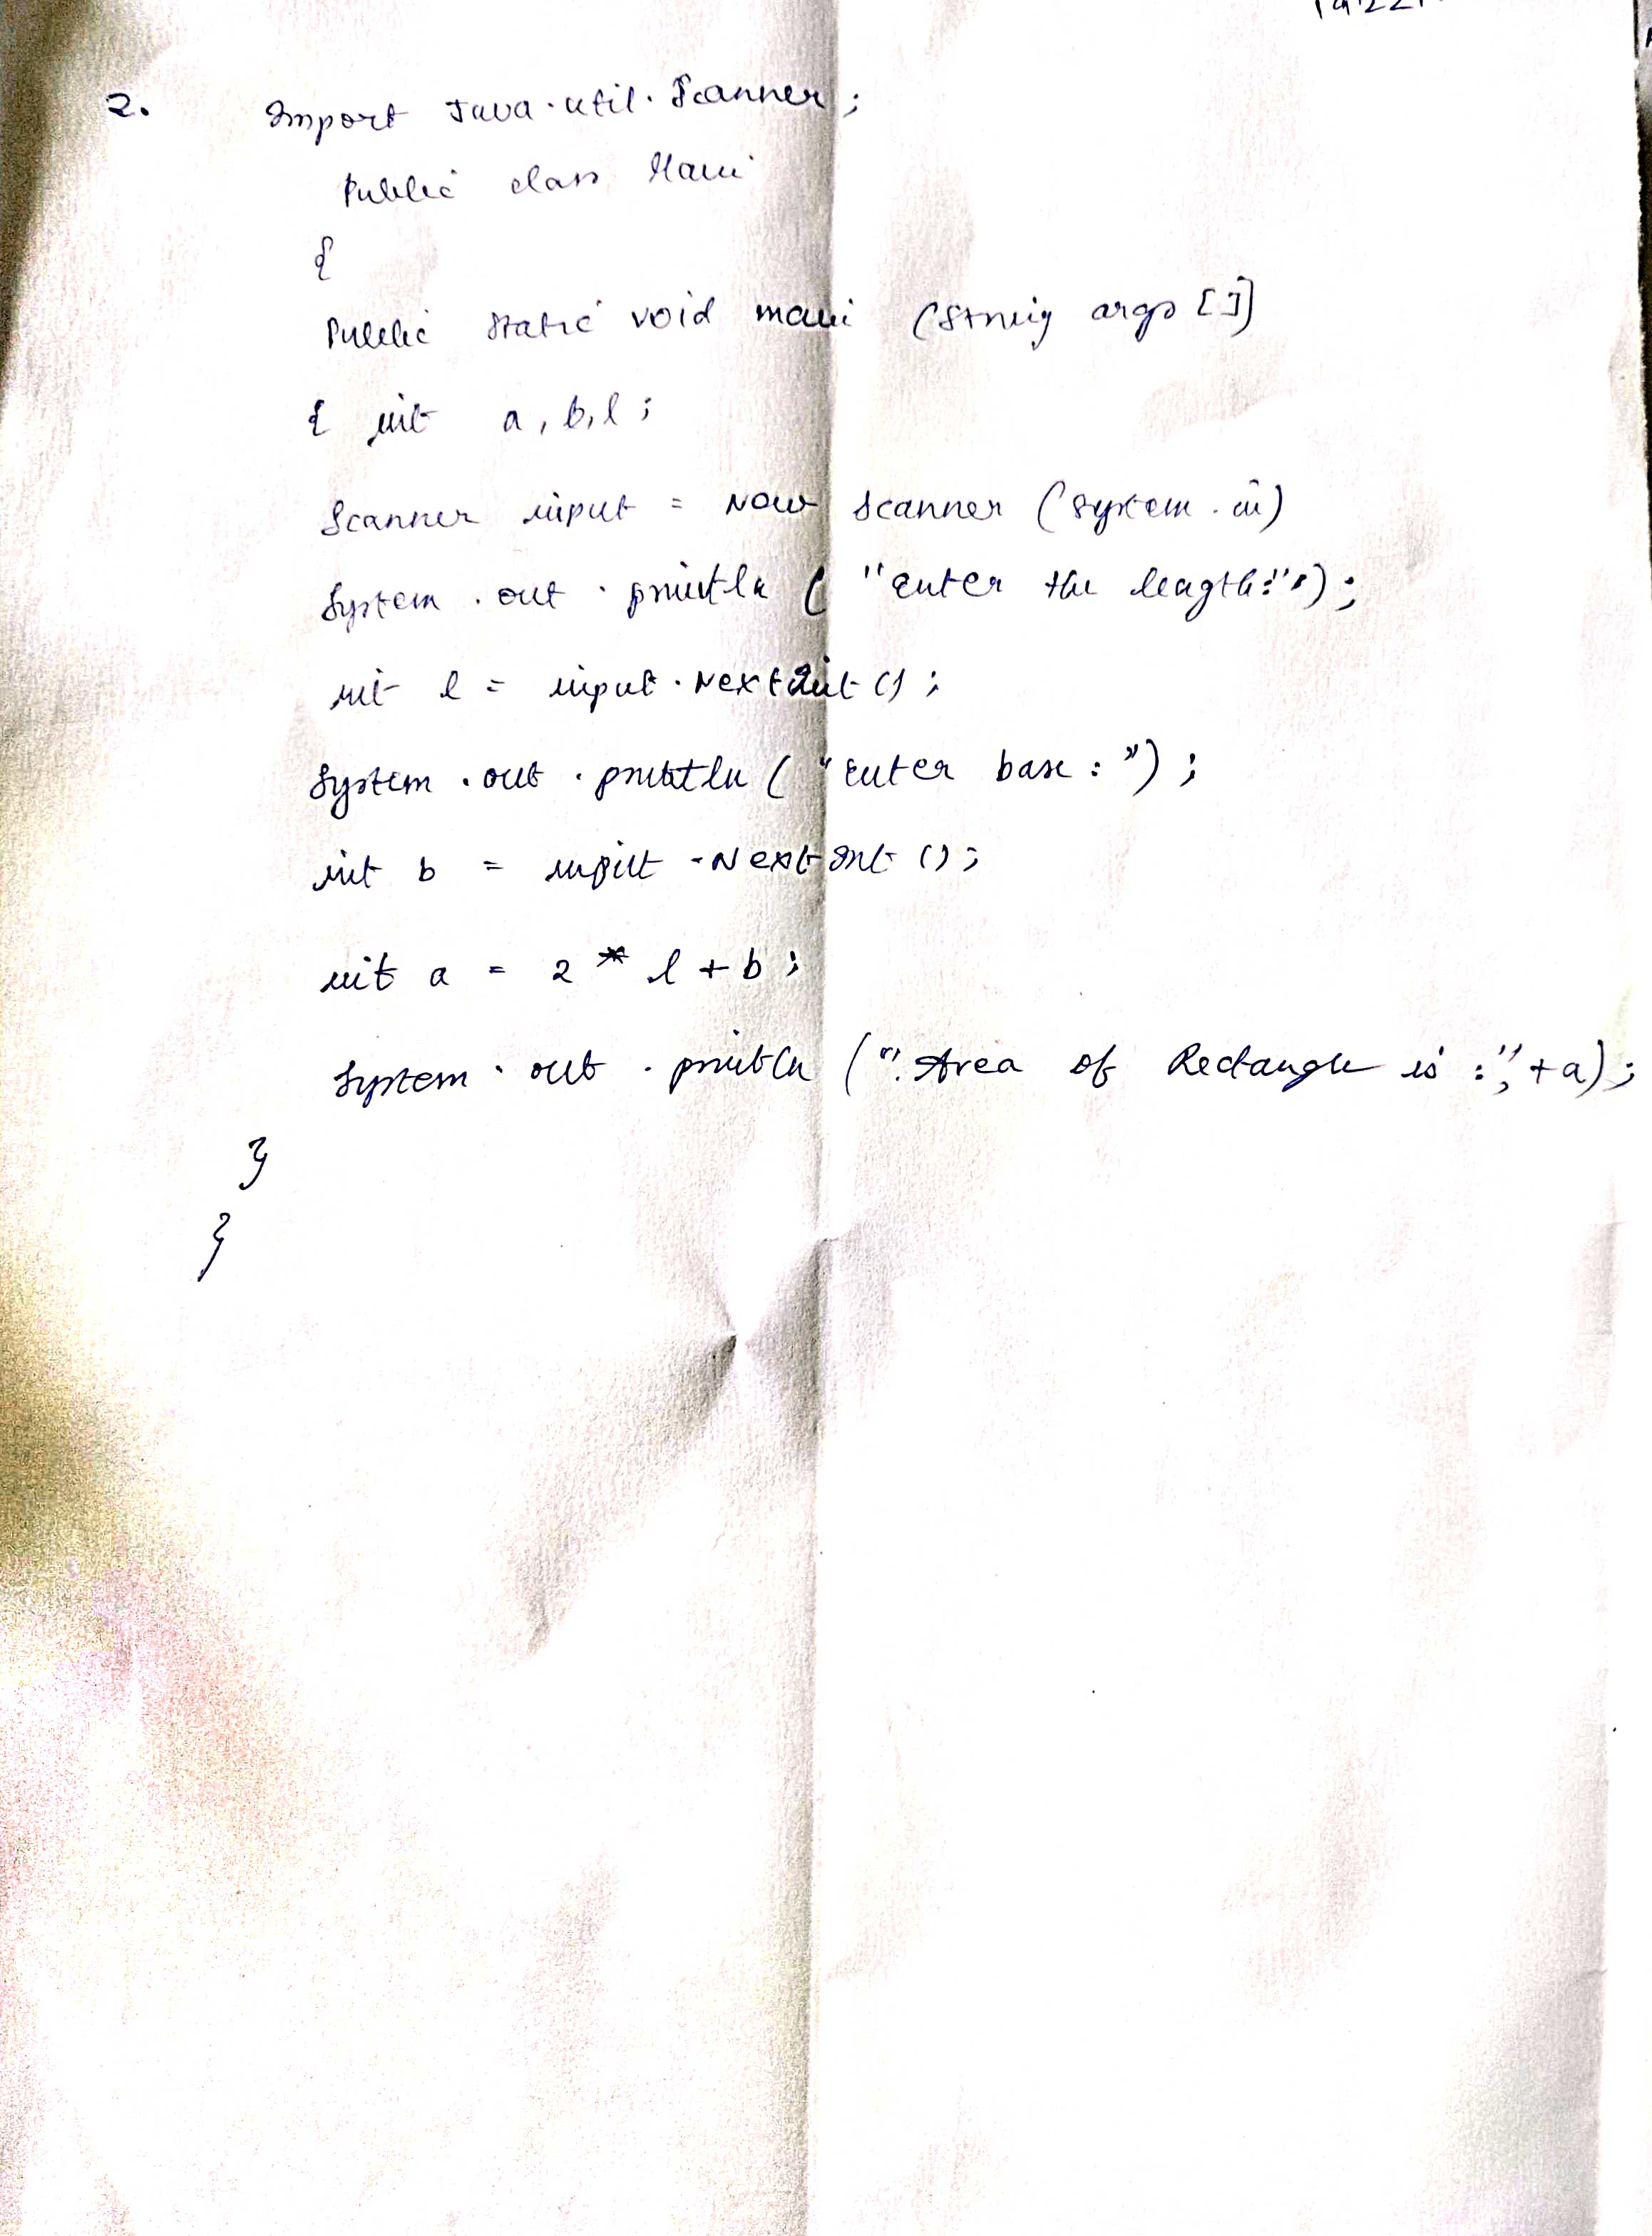 2. Import Java.util.Scanner;
Public class Main
{
Public static void main (String args []
{ int a, b, l;
Scanner input = New Scanner (System.in)
System.out.println ( "enter the length:");
int l = input.NextInt();
System.out.println ("enter base:");
int b = input.NextInt();
int a = 2 * l + b;
System.out.println (" Area of Rectangle is:", +a);
}
}